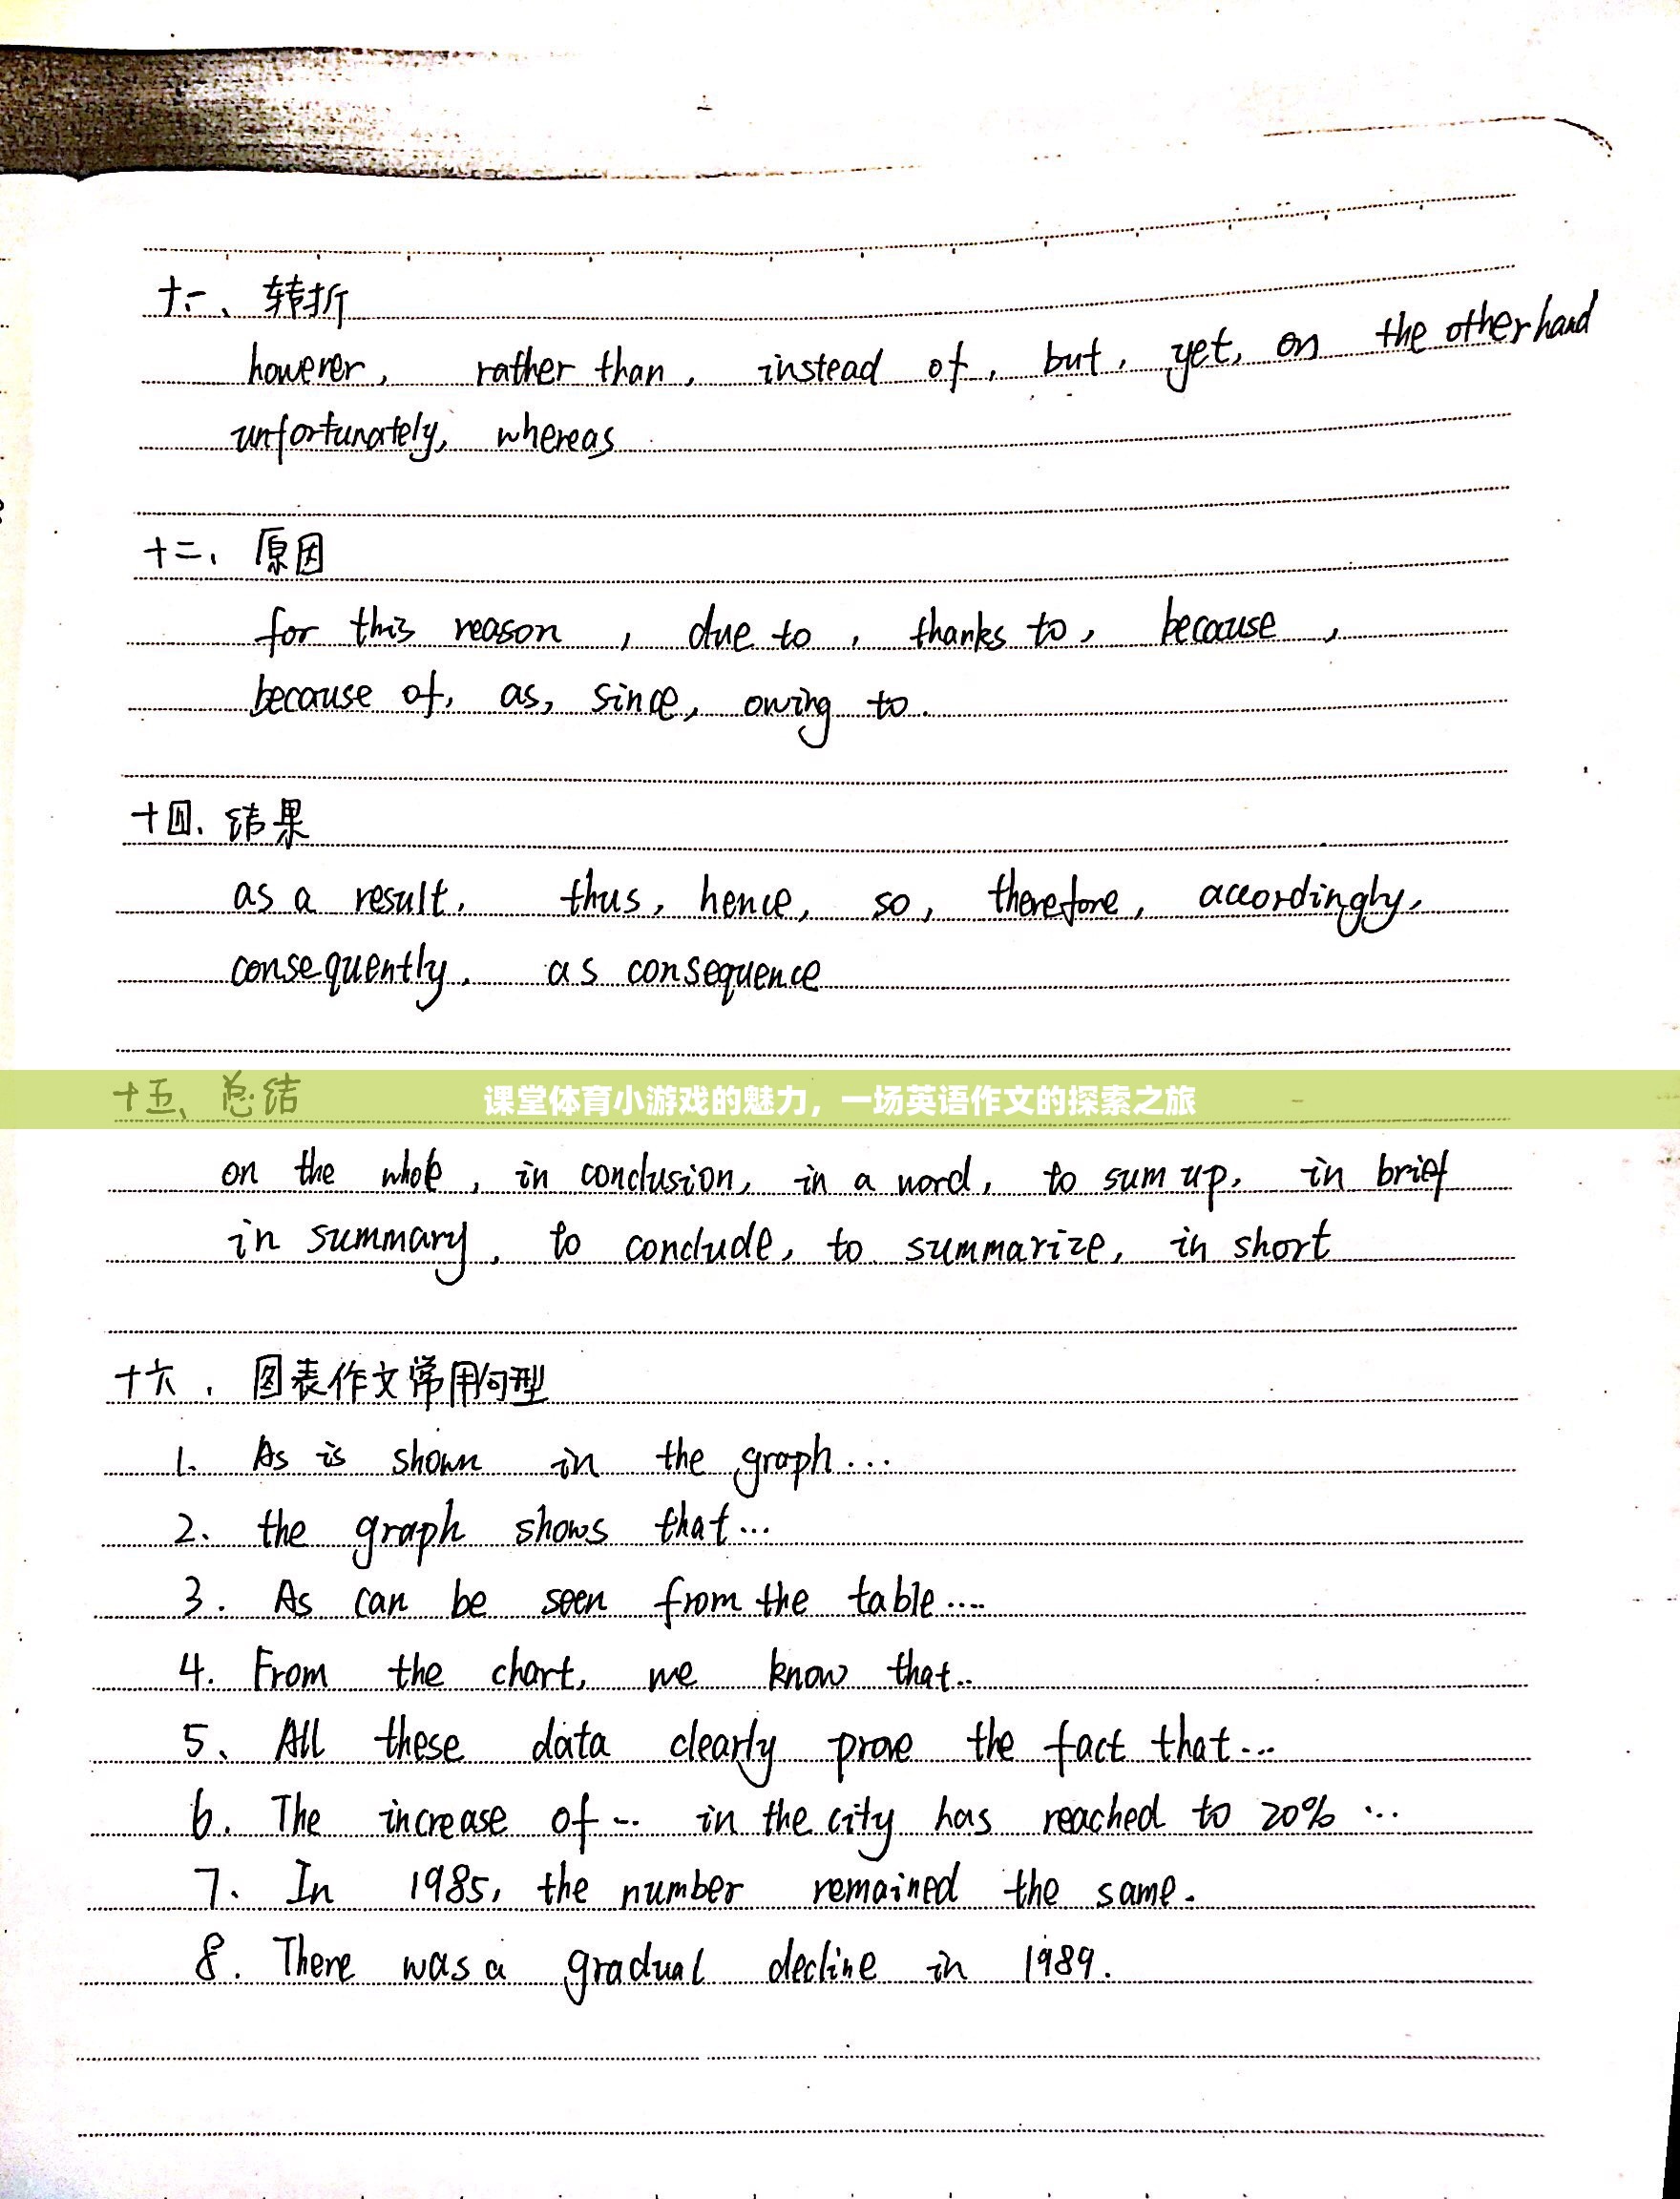 十一、转折
however, rather than, instead of, but, yet, on the otherhand
unfortunately, whereas
十二、原因
for this reason, due to, thanks to, because,
because of, as, since, owing to.
十四、结果
as a result, thus, hence, so, therefore, accordingly,
consequently, as consequence
十五、总结
课堂体育小游戏的魅力，一场英语作文的探索之旅
on the whole, in conclusion, in a word, to sum up, in brief
in summary, to conclude, to summarize, in short
十六、图表作文常用句型
1. As is shown in the graph...
2. the graph shows that...
3. As can be seen from the table....
4. From the chart, we know that...
5、All these data clearly prove the fact that...
6. The increase of ... in the city has reached to 20% ...
7. In 1985, the number remained the same.
8. There was a gradual decline in 1989.